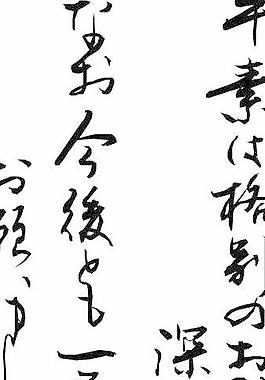 平素は格別のお
深
なお今後とも一
お願い申し